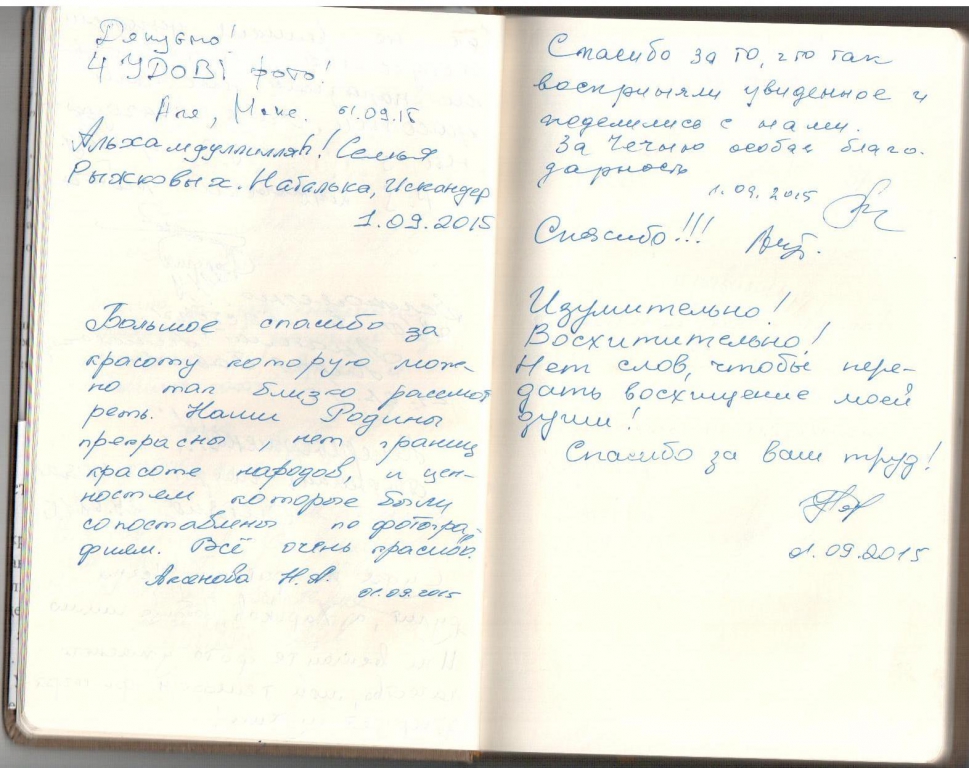 Дякуємо
ЧУДОВІ фото!
Аля, Макс. 01.09.15
Альхамдулиллях! Семья
Рыжковых. Наталька, Искандер
1.09.2015
Большое спасибо за
красоту которую мож-
но так близко рассмот
реть. Наши Родины
прекрасны нет границ
красоте народов, и цен-
ностям которые были
сопоставлены по фотогра-
фиям. Всё очень красиво.
Аксенова Н.А.
01.09.2015
Спасибо за то, что так
восприняли увиденное и
поделились с нами.
За Чечню особая благо-
дарность
1.09.2015
Спасибо!!!
Изумительно!
Восхитительно!
Нет слов, чтобы пере-
дать восхищение моей
души!
Спасибо за ваш труд!
01.09.2015